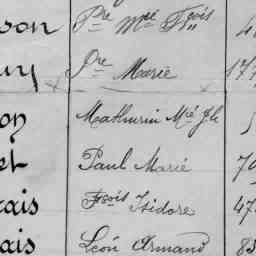 son Pre Mié Fçois 4
Pre Marie 17
on Mathurin Mie Jh
et Paul Marie 7
çais Fçois Isidore 47
ais Léon Armand 85